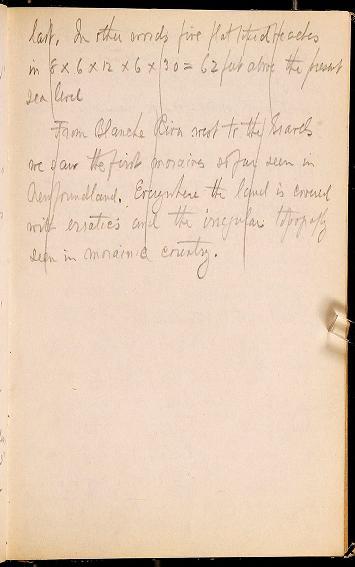 last. In other words five flat pitted beaches
in 8 x 6 x 12 x 6 x 30 = 62 feet above the present
sea level
From Blanche River west to the Gravels
we saw the first moraines so far seen in
Newfoundland. Everywhere the land is covered
with erratics and the irregular topography
seen in morainic country.